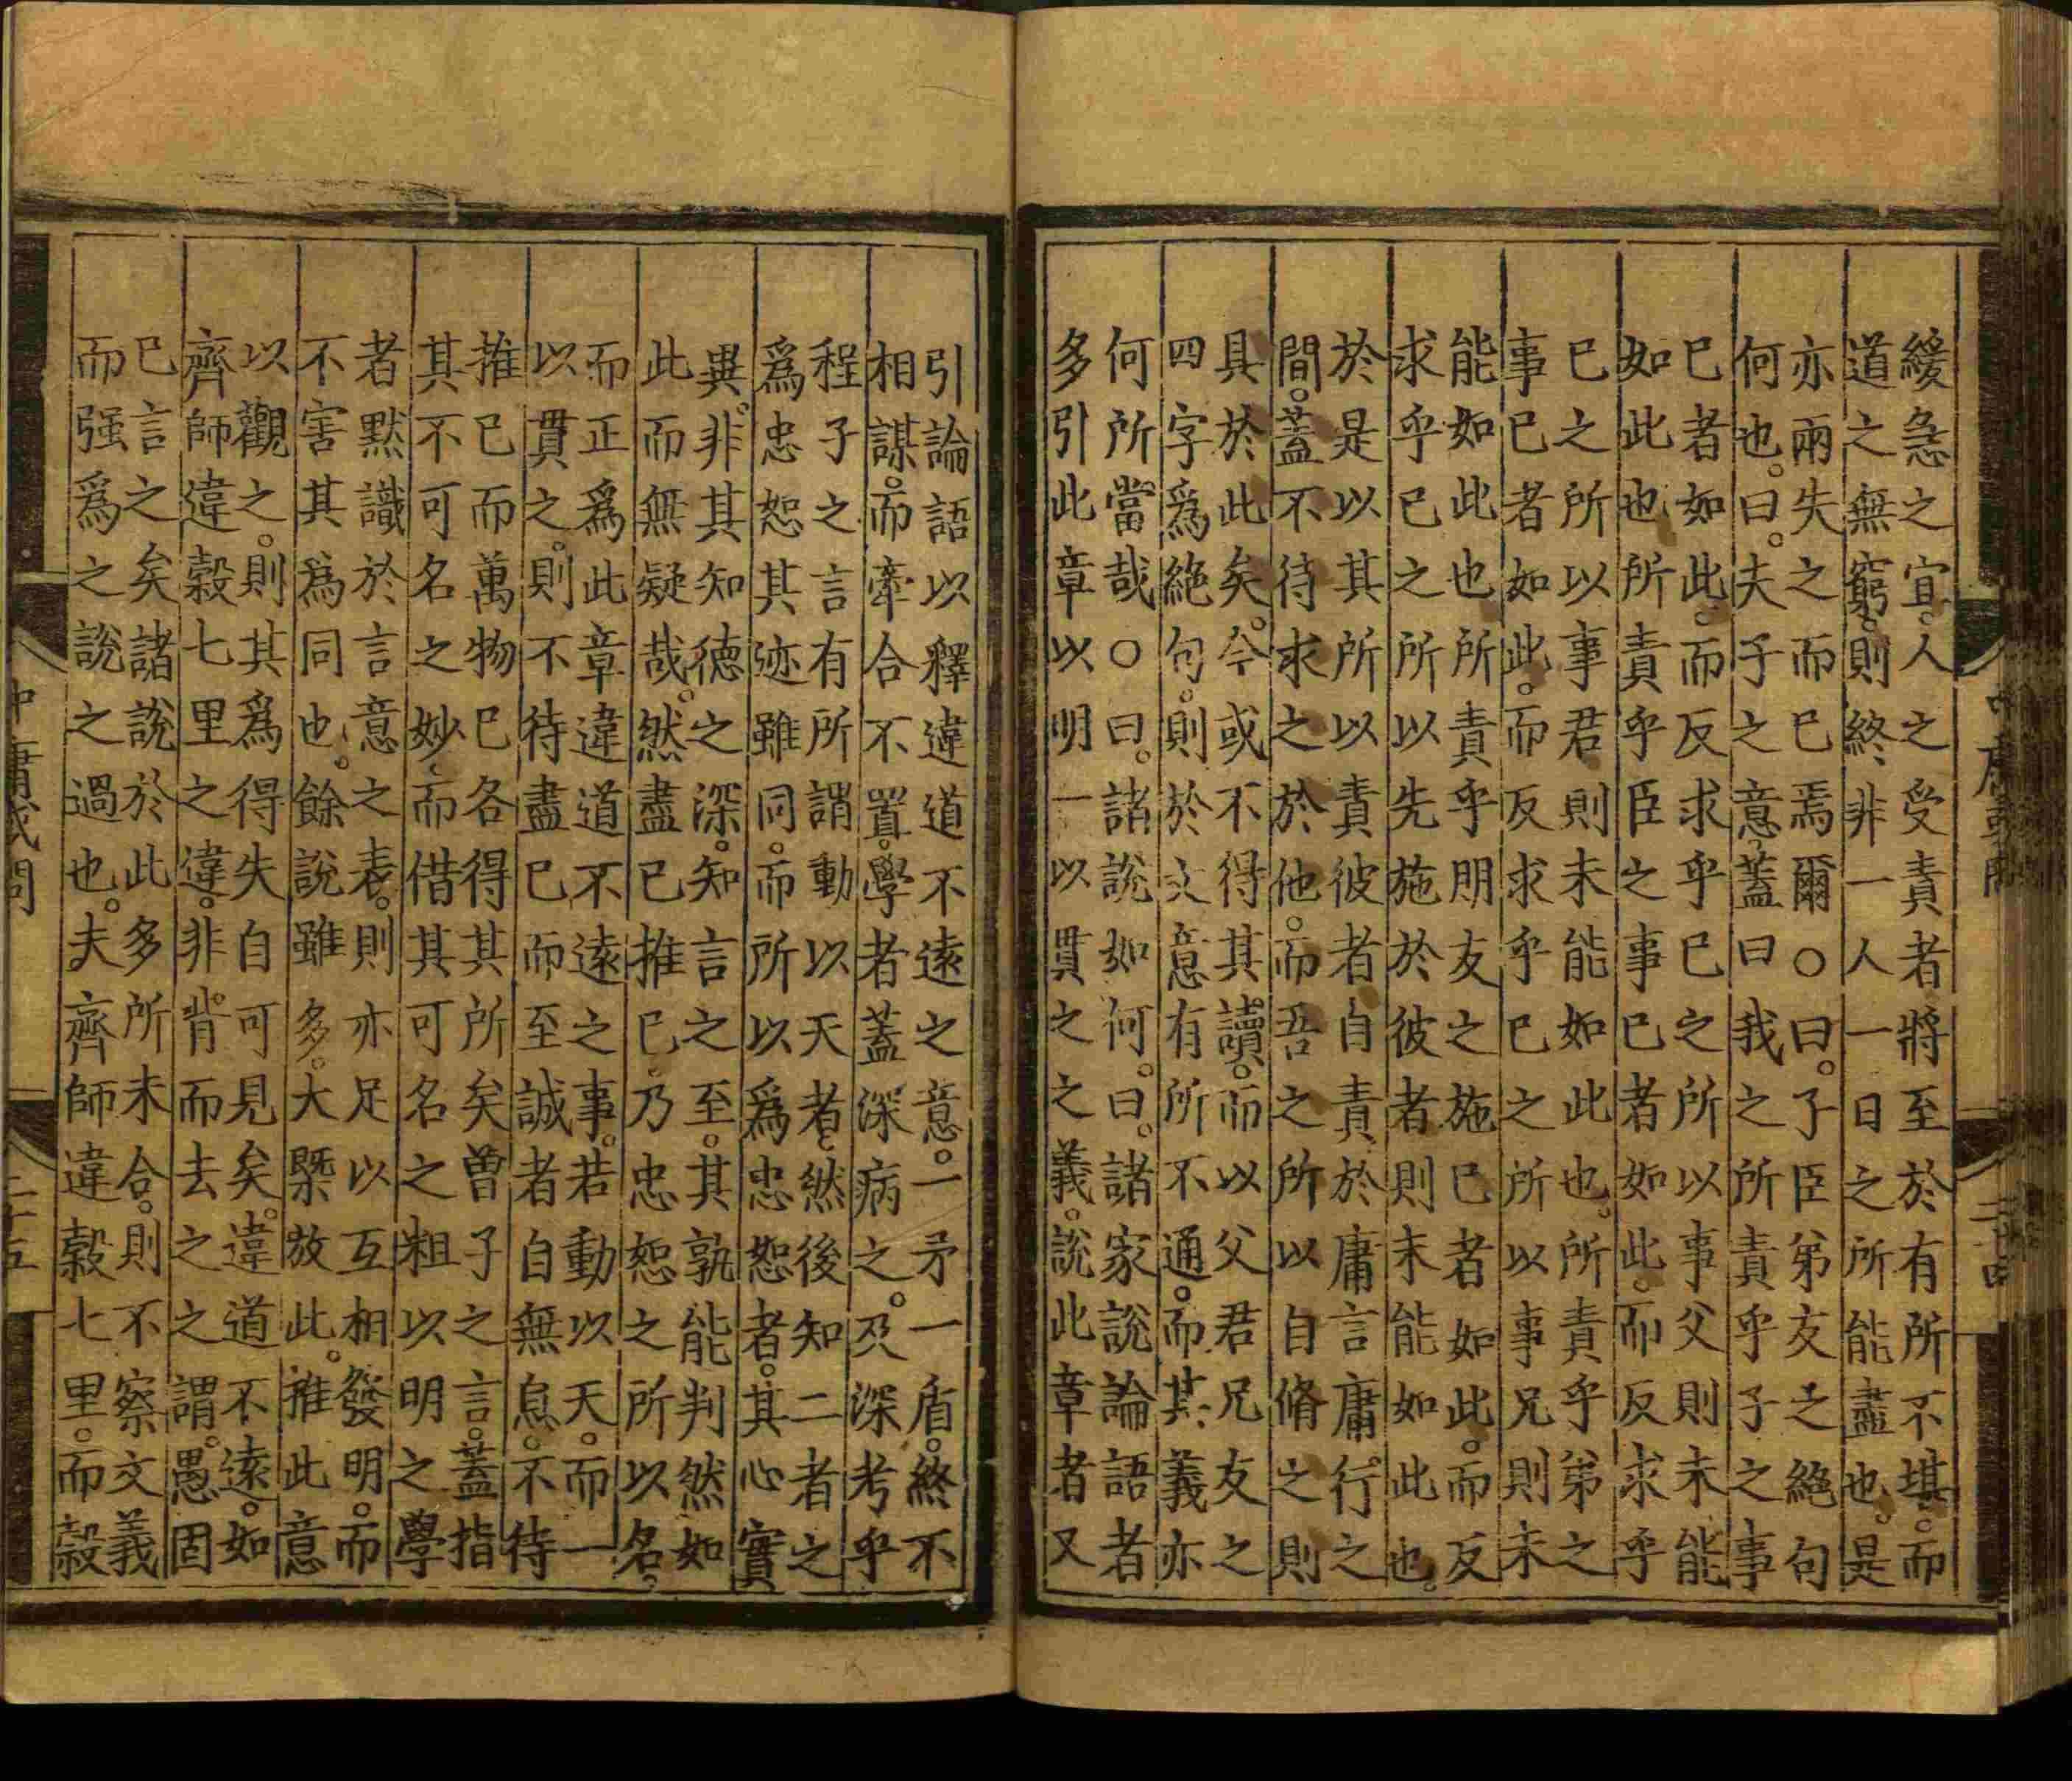 緩急之宜。人之受責者將至於有所不堪。而
道之無窮。則終非一人一日之所能盡也。是
亦兩失之而已焉爾○曰。子臣弟友之絕句
何也。曰。夫子之意。蓋曰我之所責乎子之事
已者如此。而反求乎已之所以事父則未能
如此也所責乎臣之事已者如此。而反求乎
已之所以事君則未能如此也。所責乎弟之
事已者如此。而反求乎已之所以事兄則未
能如此也所責乎朋友之施已者如此。而反
求乎已之所以先施於彼者則未能如此也。
於是以其所以責彼者自責於庸言庸行之
間。蓋不待求之於他。而吾之所以自脩之則
具於此矣。今或不得其讀。而以父君兄友之
四字爲絕句。則於文意有所不通。而其義亦
何所當哉○曰。諸說如何。曰。諸家說論語者
多引此章以明一以貫之之義。說此章者又
引論語以釋違道不遠之意。一矛一盾。終不
相謀。而牽合不置。學者蓋深病之。及深考乎
程子之言有所謂動以天者。然後知二者之
爲忠恕其迹雖同。而所以爲忠恕者。其心實
異。非其知德之深。知言之至。其孰能判然如
此而無疑哉。然盡已推已。乃忠恕之所以名。
而正爲此章違道不遠之事。若動以天。而一
以貫之。則不待盡已而至誠者自無息。不待
推已而萬物已各得其所矣曾子之言。蓋指
其不可名之妙。而借其可名之粗以明之學
者默識於言意之表。則亦足以互相發明。而
不害其爲同也。餘說雖多。大槩放此。推此意
以觀之。則其爲得失自可見矣。違道不遠。如
齊師違穀七里之違。非背而去之之謂。愚固
已言之矣諸說於此多所未合。則不察文義
而强爲之說之過也。夫齊師違穀七里。而穀
中庸或問
二十五
中庸或問
二十四